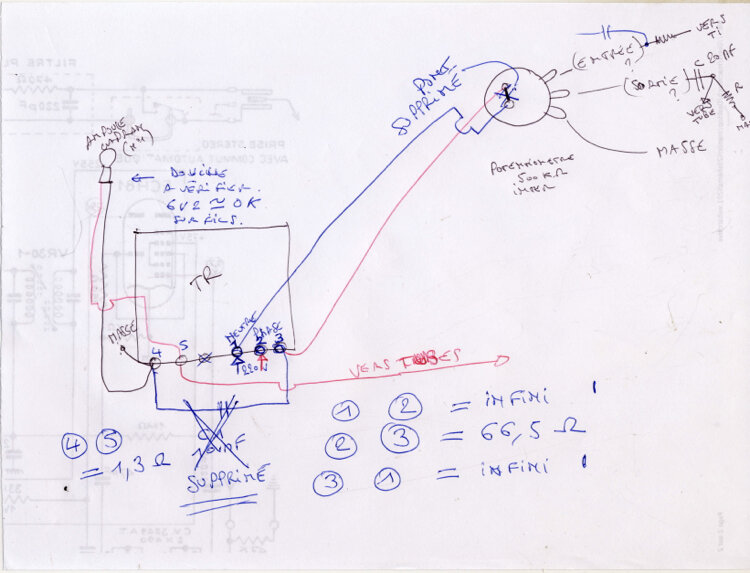 VERS
TI
(ENTRÉE)
?
(SORTIE)
?
C 20 nF
R
VERS
TUBE
MASSE
PONT
SUPPRIMÉ
POTENTIOMETRE
500 KΩ
INTER
AMPOULE
CADRAN
DOUILLE
A VÉRIFIER.
6V2 ≈ OK
SUR FILS.
TR
MASSE
4
5
NEUTRE
PHASE
1
2
3
220V
VERS TUBES
C1
10nF
SUPPRIMÉ
④ ⑤
= 1,3 Ω
① ② = INFINI
② ③ = 66,5 Ω
③ ① = INFINI
FILTRE
470Ω
220pF
PRISE STEREO
AVEC COMMUT AUTOMAT